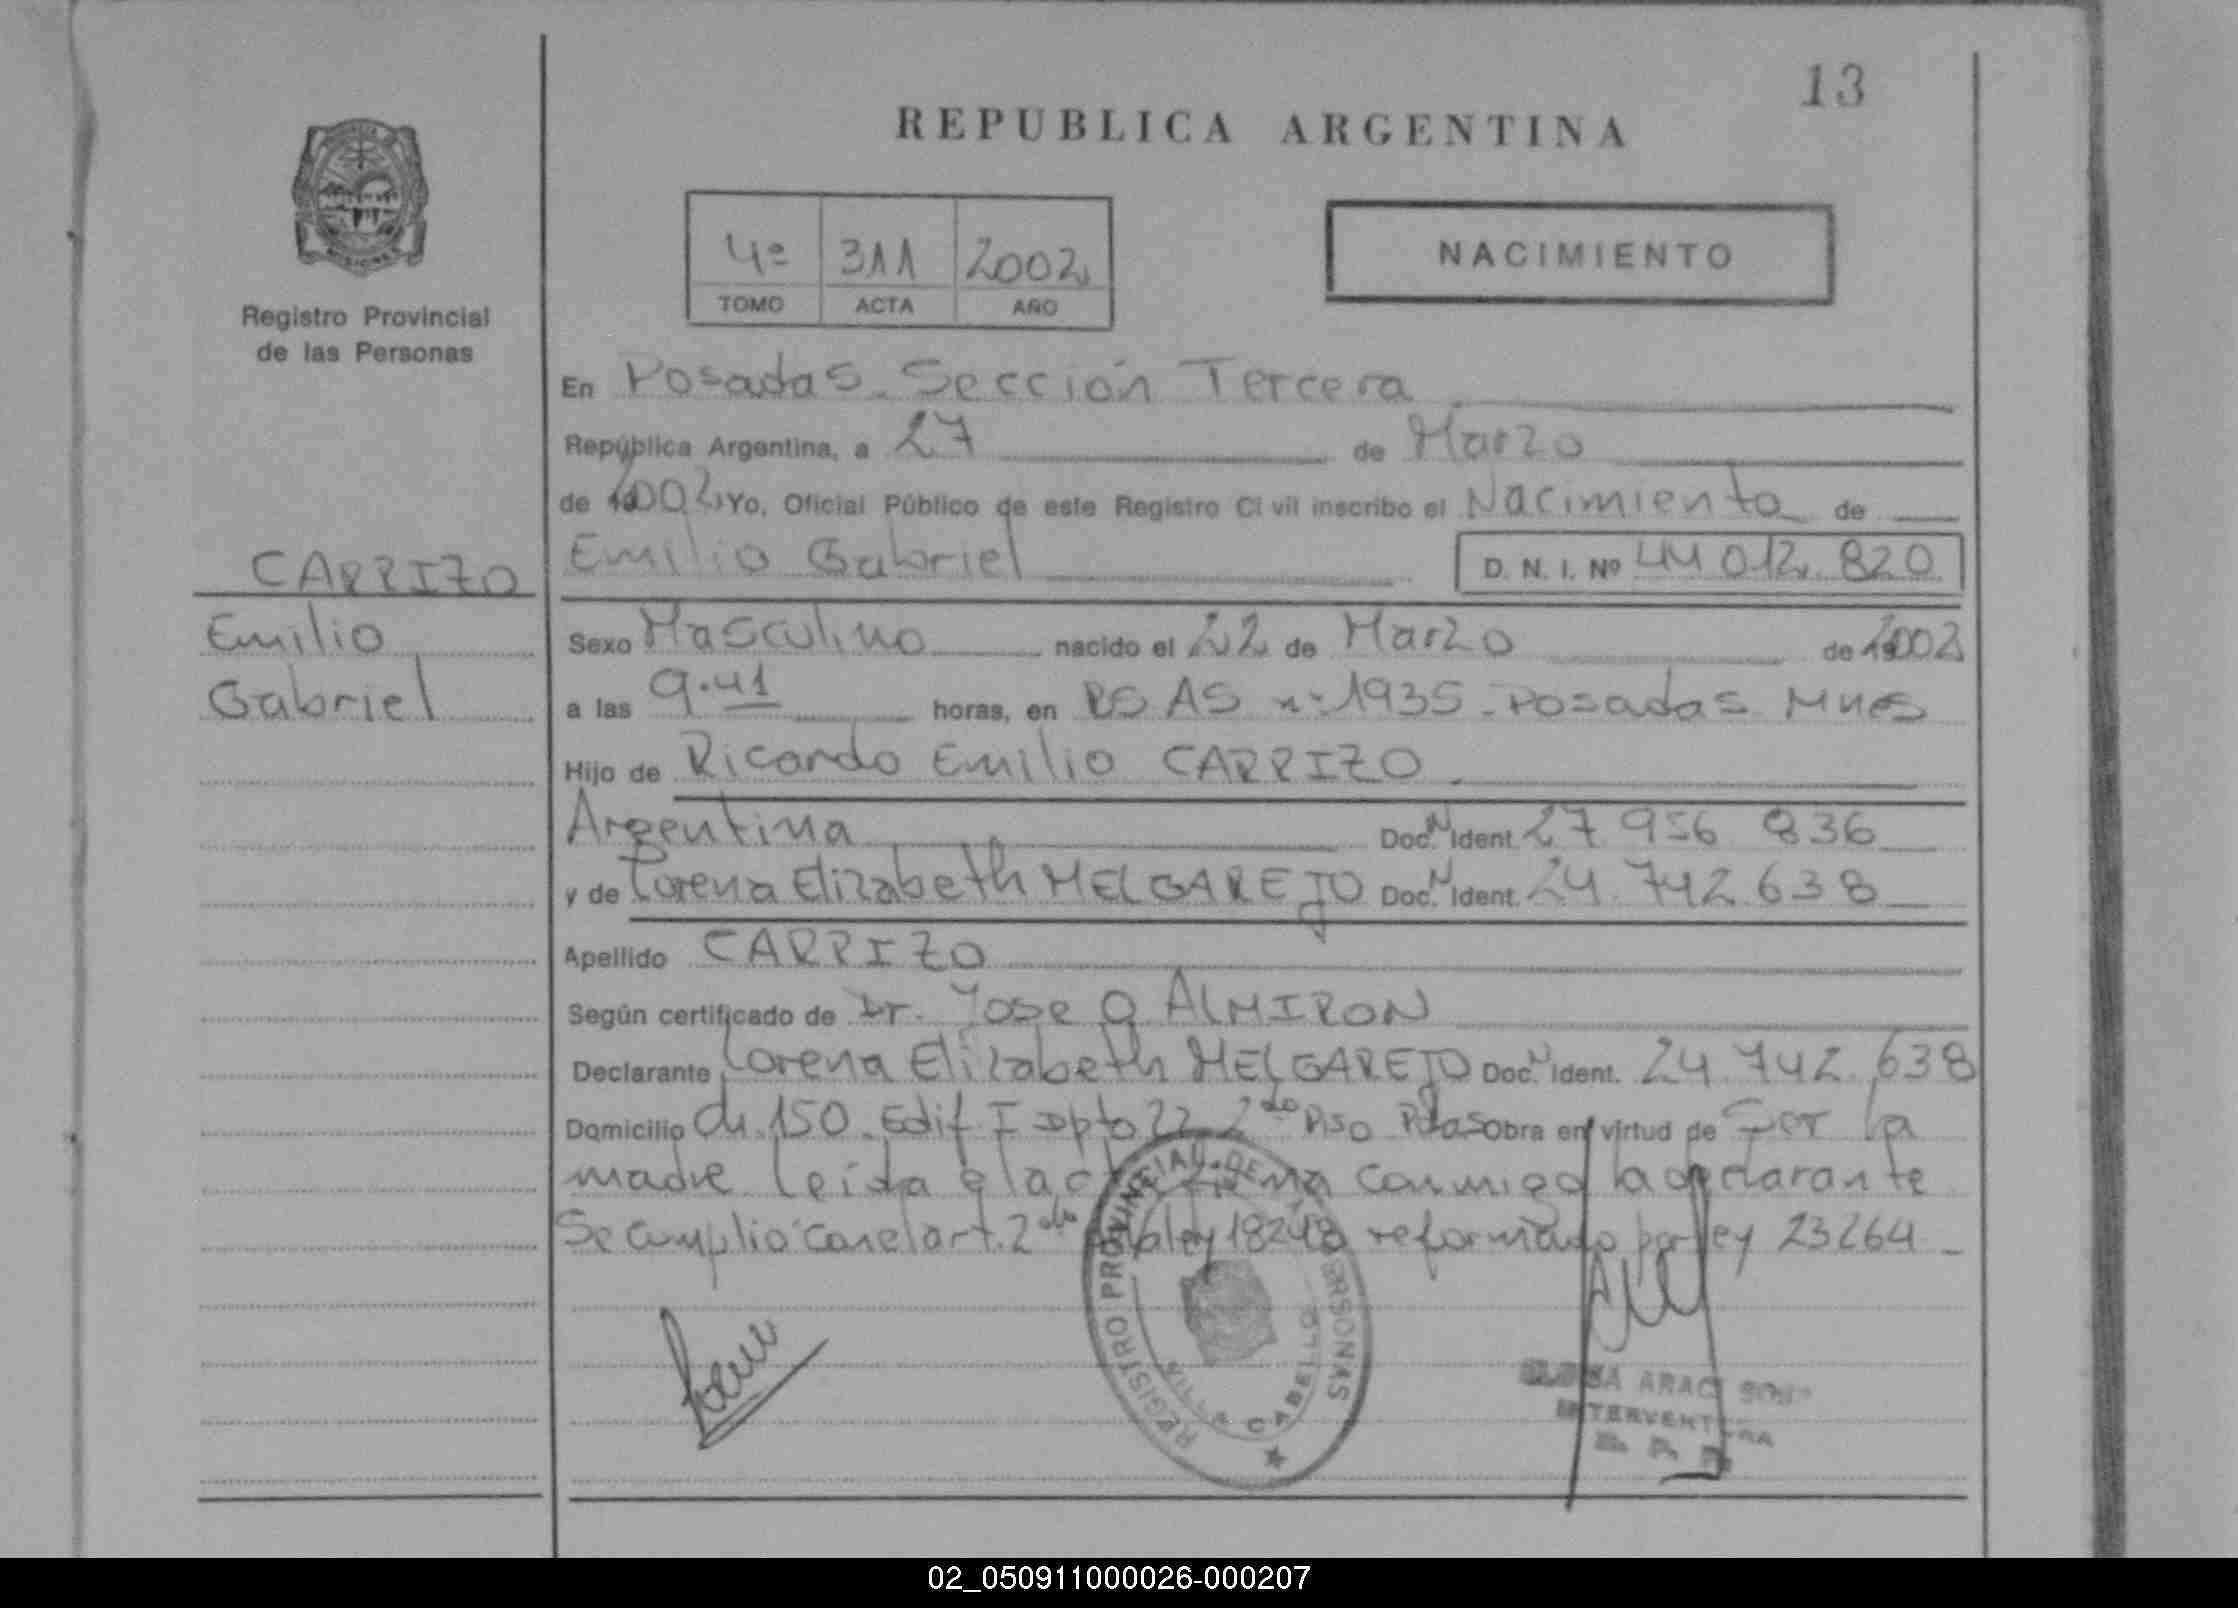 13
REPUBLICA ARGENTINA
4º 311 2002
TOMO ACTA AÑO
NACIMIENTO
Registro Provincial
de las Personas
En Posadas. Sección Tercera
República Argentina, a 27 de Marzo
de 2002 Yo, Oficial Público de este Registro Civil inscribo el Nacimiento de
Emilio Gabriel D. N. I. Nº 44 012. 820
CARRIZO
Emilio
Gabriel
Sexo Masculino nacido el 22 de Marzo de 2002
a las 9.41 horas, en BS AS nº 1935 - Posadas Mnes
Hijo de Ricardo Emilio CARRIZO
Argentina Doc. N Ident. 27 956 836
y de Lorena Elizabeth MELGAREJO Doc. N Ident. 24. 742. 638
Apellido CARRIZO
Según certificado de Dr. Jose O ALMIRON
Declarante Lorena Elizabeth MELGAREJO Doc. N Ident. 24. 742. 638
Domicilio Ch. 150. Edif I Dpto 22 2do Piso Pdas Obra en virtud de Ser la
madre leida el acta firma conmigo la declarante
Se cumplio con el art. 2do ley 18248 reformado por ley 23264
REGISTRO PROVINCIAL DE PERSONAS
CABELLO
INTERVENTORA
02_050911000026-000207